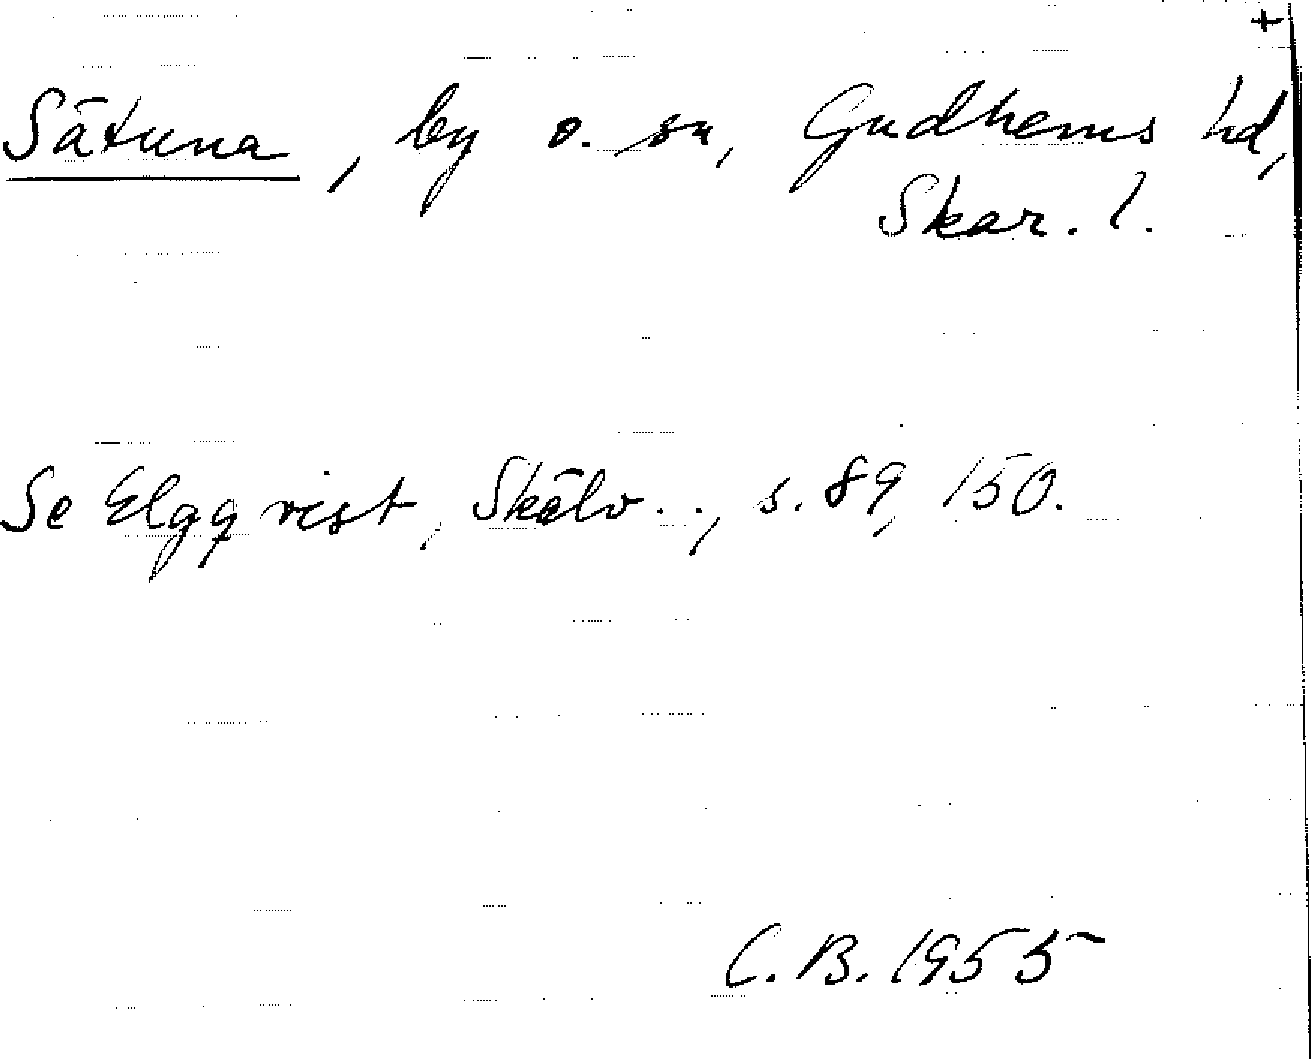 +
Sätuna, by o. sn, Gudhems hd,
Skar. l.
Se Elgqvist, Skälv.., s. 89, 150.
C.B. 1955